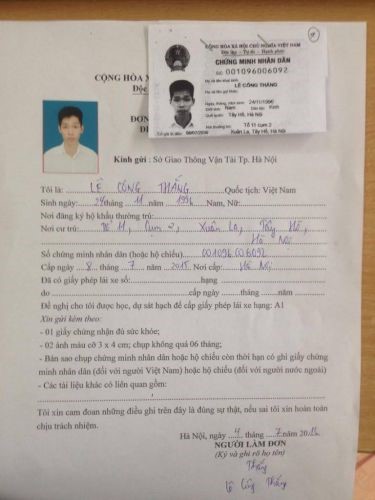 CỘNG HÒA XÃ HỘI CHỦ NGHĨA VIỆT NAM
Độc lập - Tự do - Hạnh phúc
CHỨNG MINH NHÂN DÂN
SỐ 001096006092
Họ và tên khai sinh:
LÊ CÔNG THẮNG
Họ và tên gọi khác:
Ngày, tháng, năm sinh: 24/11/1996
Giới tính: Nam Dân tộc: Kinh
Quê quán: Tây Hồ, Hà Nội
Nơi thường trú: Tổ 11 cụm 2
Xuân La, Tây Hồ, Hà Nội
CỘNG HÒA X
Độc
ĐƠN
Kính gửi : Sở Giao Thông Vận Tải Tp. Hà Nội
Tôi là: LÊ CÔNG THẮNG Quốc tịch: Việt Nam
Sinh ngày: 24 tháng 11 năm 1996 Nam, Nữ:
Nơi đăng ký hộ khẩu thường trú:
Nơi cư trú: Tổ 11, Cụm 2, Xuân La, Tây Hồ,
Hà Nội
Số chứng minh nhân dân (hoặc hộ chiếu) 001096006092
Cấp ngày 8 tháng 7 năm 2015 Nơi cấp: Hà Nội
Đã có giấy phép lái xe số: hạng
do cấp ngày tháng năm
Đề nghị cho tôi được học, dự sát hạch để cấp giấy phép lái hạng: A1
Xin gửi kèm theo:
- 01 giấy chứng nhận đủ sức khỏe;
- 02 ảnh màu cỡ 3 x 4 cm; chụp không quá 06 tháng;
- Bản sao chụp chứng minh nhân dân hoặc hộ chiếu còn thời hạn có ghi giấy chứng
minh nhân dân (đối với người Việt Nam) hoặc hộ chiếu (đối với người nước ngoài)
- Các tài liệu khác có liên quan gồm:
Tôi xin cam đoan những điều ghi trên đây là đúng sự thật, nếu sai tôi xin hoàn toàn
chịu trách nhiệm.
Hà Nội, ngày 4 tháng 7 năm 2016
NGƯỜI LÀM ĐƠN
(Ký và ghi rõ họ tên)
Thắng
Lê Công Thắng